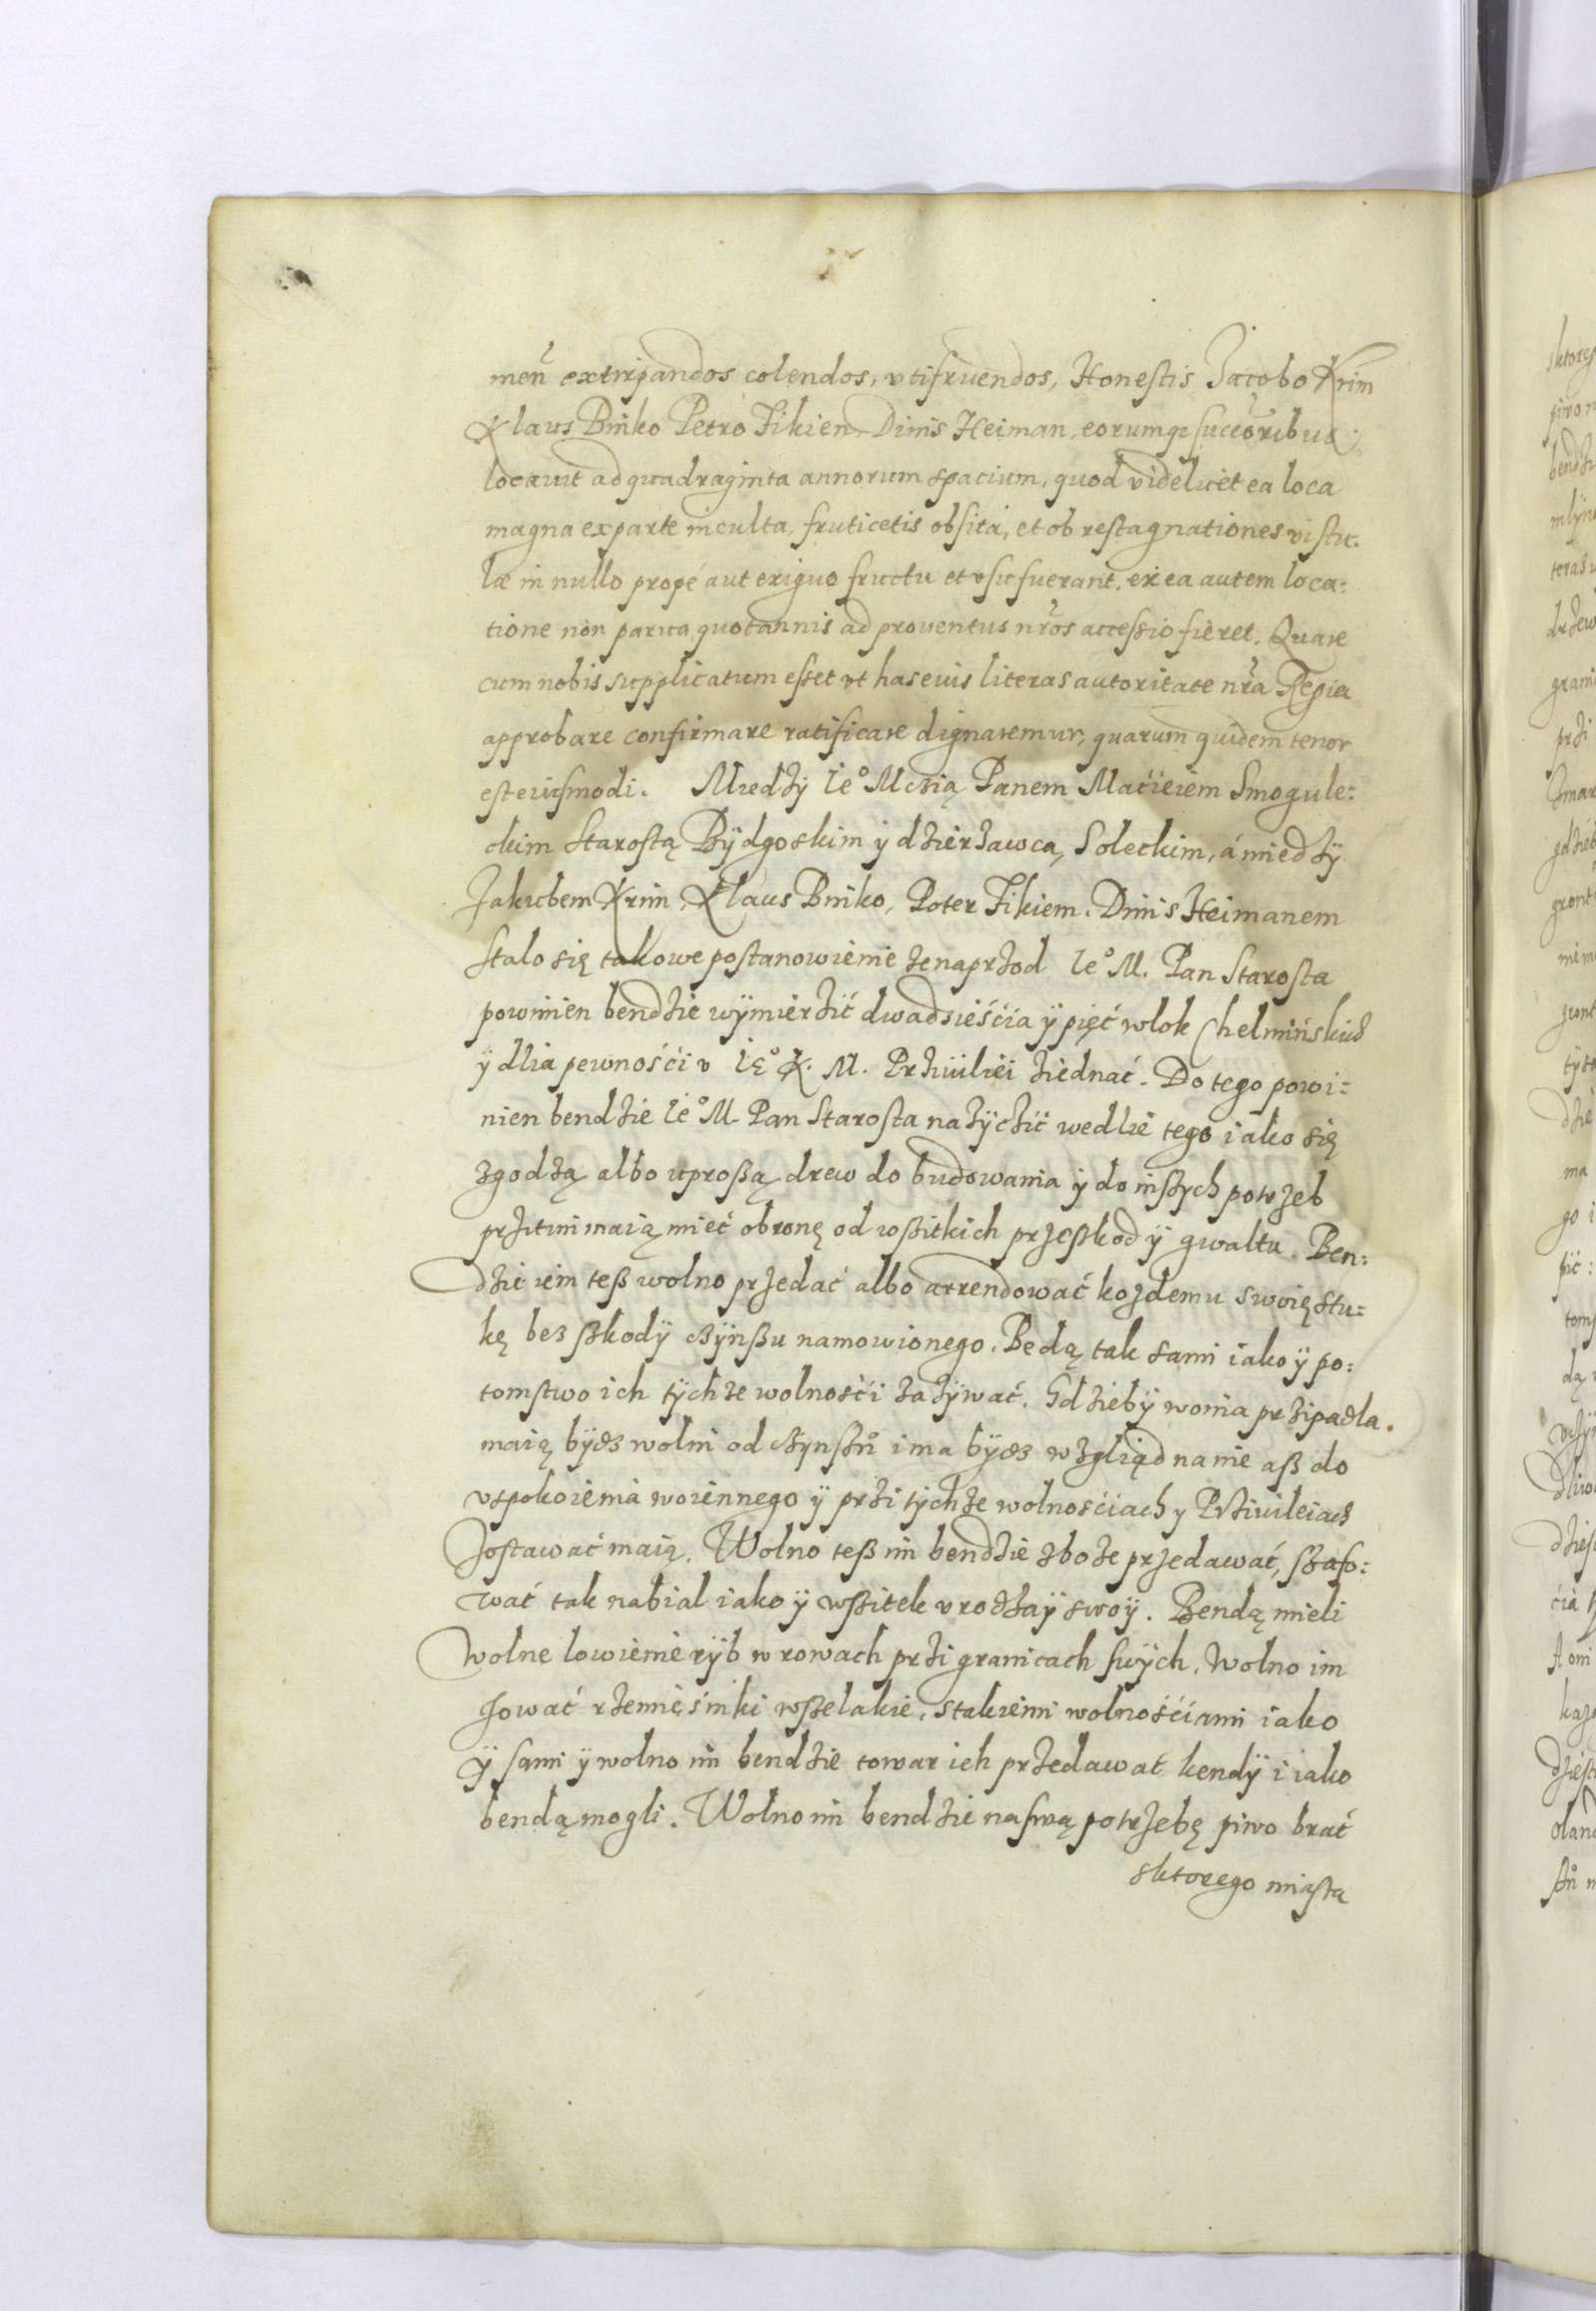 men̄ extirpandos colendos, vtifruendos, Honestis Jacobo Krim
Klaus Binko Petro Fikien Dinis Heiman, eorumq; succ̄oribus
locauit ad quadraginta annorum spacium, quod videlicet ea loca
magna ex parte inculta, fruticetis obsita, et ob restagnationes vistu:
læ in nullo propé aut exiguo fructu et vsu fuerant, ex ea autem loca:
tione non parua quotannis ad prouentus nr̄os accessio fieret. Quare
cum nobis supplicatum esset vt has eius literas autoritate nr̄a Regia
approbare confirmare ratificare dignaremur, quarum quidem tenor
est eiusmodi. Miedzÿ Ie° Mczią Panem Maćieiem Smogule:
ckim Starostą Bÿdgoskim ÿ dzierżawcą Soleckim, á miedzÿ
Jakubem Krim, Klaus Binko, Poter Fikiem, Dinis Heimanem
stalo się takowe postanowienie że naprzod Ie° M. Pan Starosta
powinien bendzie wÿmierzić dwadzieśćia ÿ pięć wlok Chelmińskich
ÿ dlia pewnośći v Ie° K. M. Prziuiliei ziednać. Do tego powi:
nien bendzie Ie° M Pan Starosta nażÿczić wedlie tego iako się
zgodzą albo uproszą drew do budowania ÿ do inszych potrzeb
przitim maią mieć obronę od wszitkich przeszkod ÿ gwaltu. Ben:
dzie im tesz wolno przedać albo arrendować kożdemu swoię sztu:
kę bez szkodÿ czÿnszu namowionego. Bedą tak sami iako ÿ po:
tomstwo ich tÿchże wolnośći zażÿwać. Gdzieby woina przipadla.
maią bÿdz wolni od czynszů i ma bÿdz wzgliąd na nie asz do
vspokoienia woiennego ÿ przi tÿchże wolnośćiach y Prziuileiach
zostawać maią. Wolno tesz im bendzie zboże przedawać, szafo:
wać tak nabial iako ÿ wszitek vrodzaÿ swoÿ. Bendą mieli
wolne lowienie rÿb w rowach przi granicach swÿch. Wolno im
hować rzemięśniki wszelakie, stakiemi wolnośćiami iako
ÿ sami ÿ wolno im bendzie towar ich przedawać kendÿ i iako
bendą mogli. Wolno im bendzie na swą potrzebę piwo brać
sktorego miasta